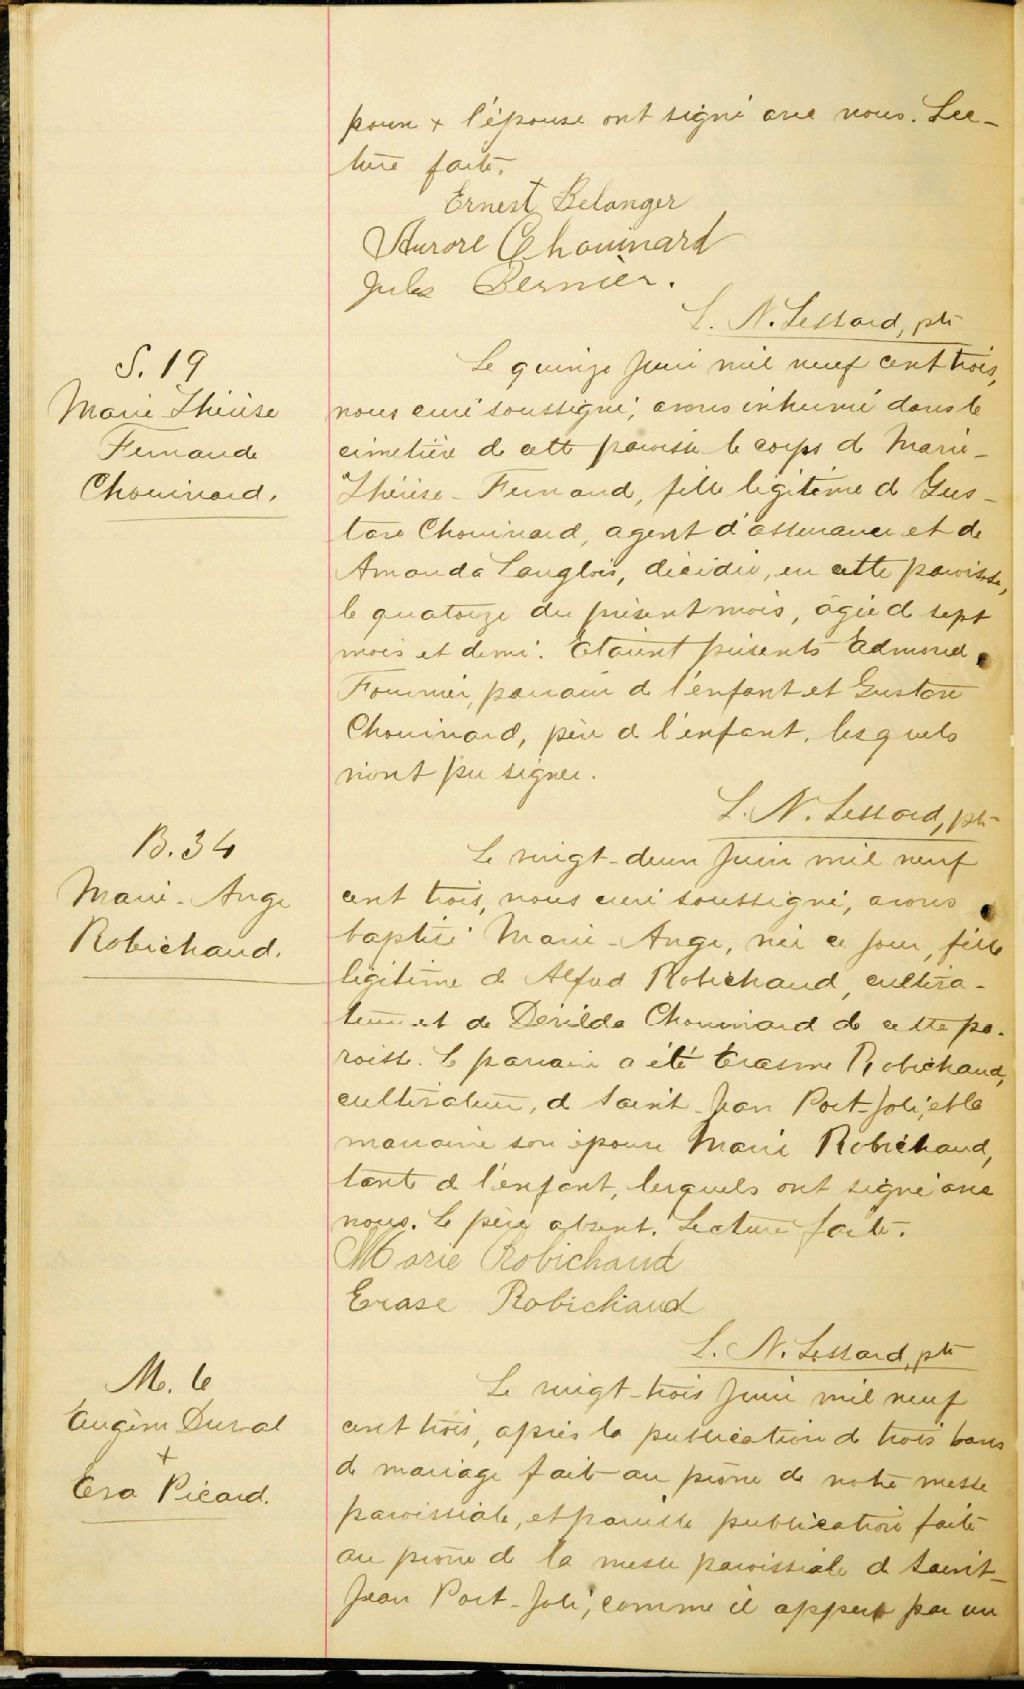 poux + l'épouse ont signé avec nous. Lec-
ture faite.
Ernest Belanger
Aurore Chouinard
Jules Bernier.
L. N. Lessard, ptr
S. 19
Marie Thérèse
Fernande
Chouinard.
Le quinze Juin mil neuf cent trois,
nous curé soussigné, avons inhumé dans le
cimetière de cette paroisse le corps de Marie-
Thérèse-Fernand, fille légitime de Gus-
tave Chouinard, agent d'assurance et de
Amanda Langlois, décédée, en cette paroisse,
le quatorze du présent mois, âgée de sept
mois et demi. Etaient présents Edmond
Fournier, parrain de l'enfant et Gustave
Chouinard, père de l'enfant, lesquels
n'ont pu signer.
L. N. Lessard, ptr
B. 34
Marie-Ange
Robichaud.
Le vingt-deux Juin mil neuf
cent trois, nous curé soussigné, avons
baptisé Marie-Ange, née ce jour, fille
légitime de Alfred Robichaud, cultiva-
teur et de Dérilda Chouinard de cette pa-
roisse. Le parrain a été Erasme Robichaud,
cultivateur, de Saint-Jean Port-Joli, et la
marraine son épouse Marie Robichaud,
tante de l'enfant, lesquels ont signé avec
nous. Le père absent. Lecture faite.
Marie Robichaud
Erase Robichaud
L. N. Lessard, ptr
M. 6
Eugène Duval
+
Eva Picard.
Le vingt-trois Juin mil neuf
cent trois, après la publication de trois bans
de mariage faite au prône de notre messe
paroissiale, et pareille publication faite
au prône de la messe paroissiale de Saint-
Jean Port-Joli, comme il appert par un